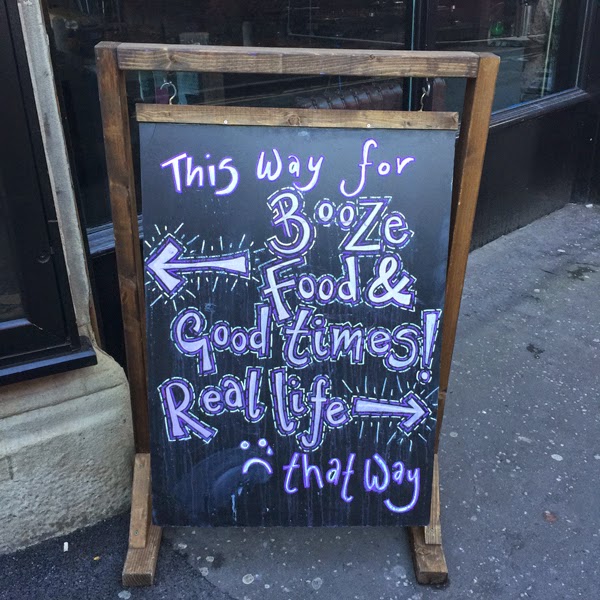 This way for
Booze
Food &
Good times!
Real life
that way